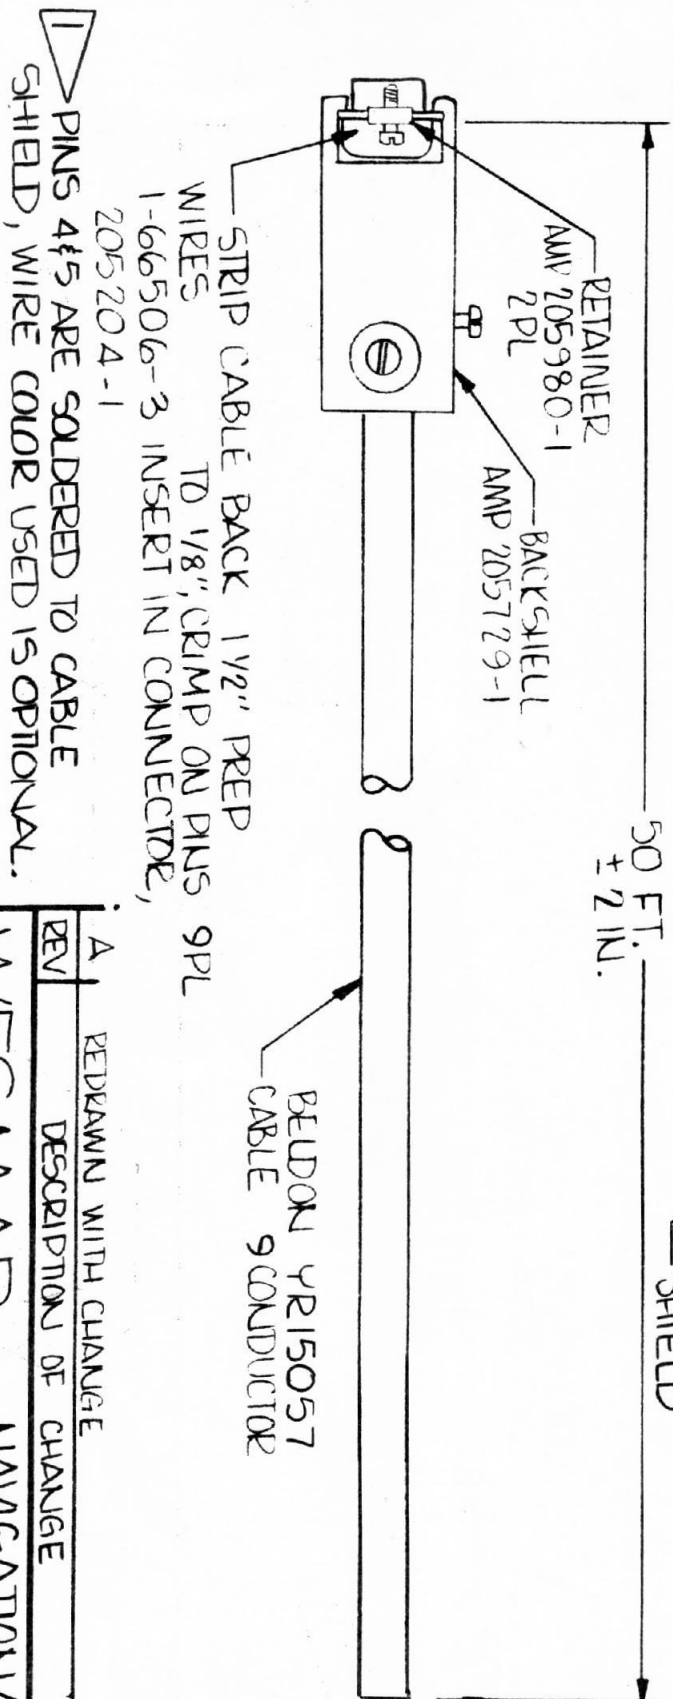 SHIELD
50 FT.
± 2 IN.
RETAINER
AMP 205980-1
2PL
BACKSHELL
AMP 205729-1
BELDON YR15057
CABLE 9 CONDUCTOR
STRIP CABLE BACK 1½" PREP
WIRES TO 1/8", CRIMP ON PINS 9PL
1-66506-3 INSERT IN CONNECTOR,
205204-1
1 PINS 4&5 ARE SOLDERED TO CABLE
SHIELD, WIRE COLOR USED IS OPTIONAL.
A REDRAWN WITH CHANGE
REV DESCRIPTION OF CHANGE